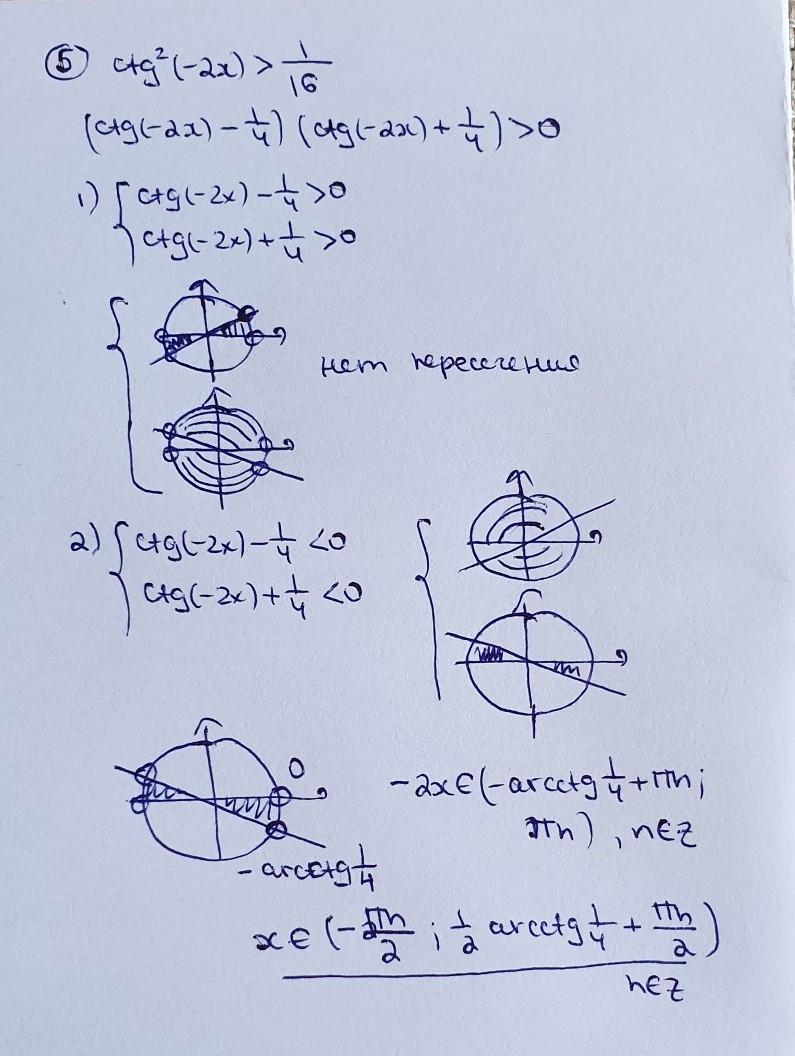 5 ctg²(-2x) > 1/16
(ctg(-2x) - 1/4) (ctg(-2x) + 1/4) > 0
1) { ctg(-2x) - 1/4 > 0
ctg(-2x) + 1/4 > 0
нет пересечения
2) { ctg(-2x) - 1/4 < 0
ctg(-2x) + 1/4 < 0
0
- arcctg 1/4
-2x ∈ (-arcctg 1/4 + πn;
πn), n ∈ Z
x ∈ (-πn/2 ; 1/2 arcctg 1/4 + πn/2)
n ∈ Z